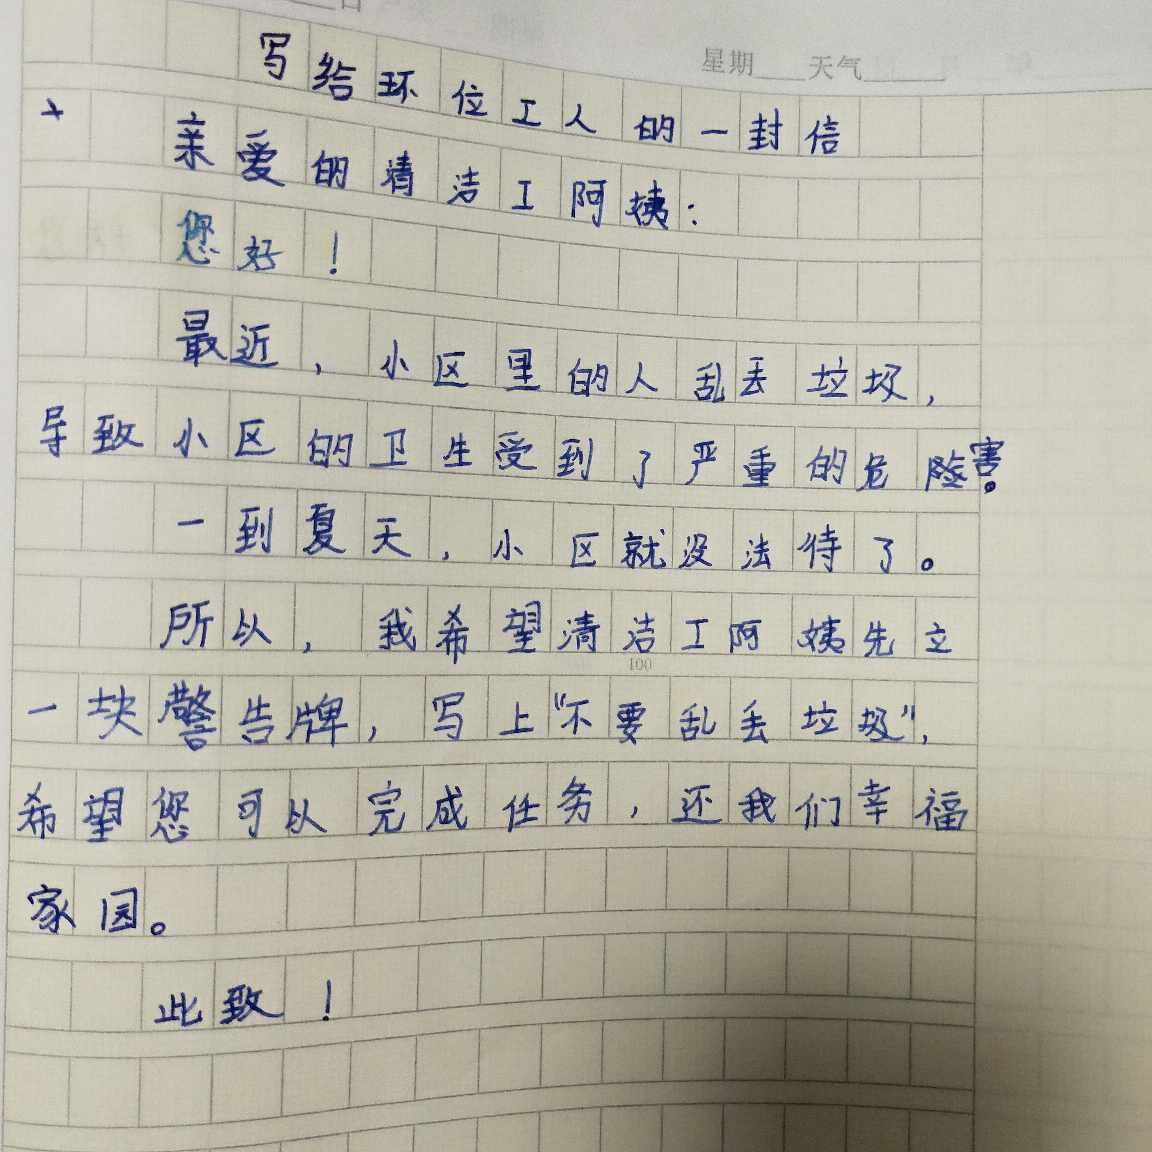 星期 天气
写给环位工人的一封信
亲爱的清洁工阿姨：
您好！
最近，小区里的人乱丢垃圾，
导致小区的卫生受到了严重的危险害。
一到夏天，小区就没法待了。
所以，我希望清洁工阿姨先立
100
一块警告牌，写上“不要乱丢垃圾”，
希望您可以完成任务，还我们幸福
家园。
此致！